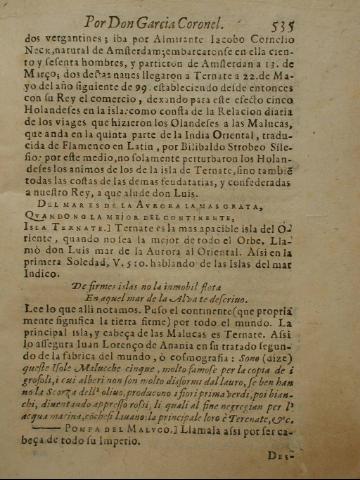 Por Don Garcia Coronel. 535
dos vergantines; iba por Almirante Iacobo Cornelio
Neck, natural de Amsterdam; embarcaronse en ella cien-
to y sesenta hombres, y partieron de Amsterdan a 13. de
Março; dos destas naues llegaron a Ternate a 22. de Ma-
yo del año siguiente de 99. estableciendo desde entonces
con su Rey el comercio, dexando para este efecto cinco
Holandeses en la isla: como consta de la Relacion diaria
de los viages que hizieron los Olandeses a las Malucas,
que anda en la quinta parte de la India Oriental, tradu-
cida de Flamenco en Latin, por Bilibaldo Strobeo Sile-
sio: por este medio, no solamente perturbaron los Holan-
deses los animos de los de la isla de Ternate, sino tambiẽ
todas las costas de las demas feudatarias, y confederadas
a nuestro Rey, a que alude don Luis.
DEL MAR ES DE LA AVRORA LA MAS GRATA,
QVANDO NO LA MEJOR DEL CONTINENTE,
ISLA TERNATE.] Ternate es la mas apacible isla del O-
riente, quando no sea la mejor de todo el Orbe. Lla-
mò don Luis mar de la Aurora al Oriental. Assi en la
primera Soledad, V. 510. hablando de las Islas del mar
Indico.
De firmes islas no la inmobil flota
En aquel mar de la Alva te descriuo.
Lee lo que alli notamos. Puso el continente (que propria
mente significa la tierra firme) por todo el mundo. La
principal isla, y cabeça de las Malucas es Ternate. Assi
lo assegura Iuan Lorenço de Anania en su tratado segun-
do de la fabrica del mundo, ò cosmografia: Sono (dize)
queste Isole Malucche cinque, molto famose per la copia de i
grosoli, i cui alberi non son molto disformi dal lauro, se ben han
no la Scorza dell' oliuo, producono i fiori prima verdi, poi bian-
chi, diuentando appresso rossi, li quali al fine negregian per l'
acqua marina, la principale loro è Terenate, &c.
—— POMPA DEL MALVCO.] Llamala assi por ser ca-
beça de todo su Imperio.
DES-